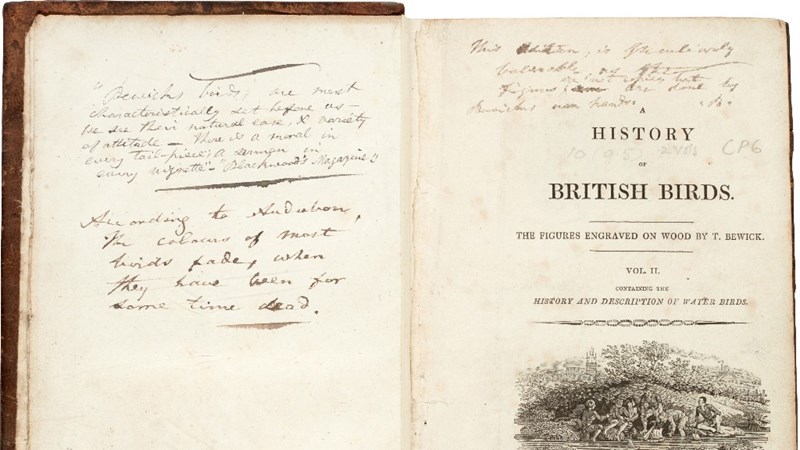 "Bewick's birds, are most
characteristically set before us—
we see their natural ease, & variety
of attitude — There is a moral in
every tail-piece; a sermon in
every vignette" — "Blackwood's Magazine"
According to Audubon,
The colours of most
birds fade, when
they have been for
some time dead.
This is
valuable as the
figures are done by
Bewick's own hands.
A
HISTORY
OF
BRITISH BIRDS.
CP6
THE FIGURES ENGRAVED ON WOOD BY T. BEWICK.
VOL. II.
CONTAINING THE
HISTORY AND DESCRIPTION OF WATER BIRDS.